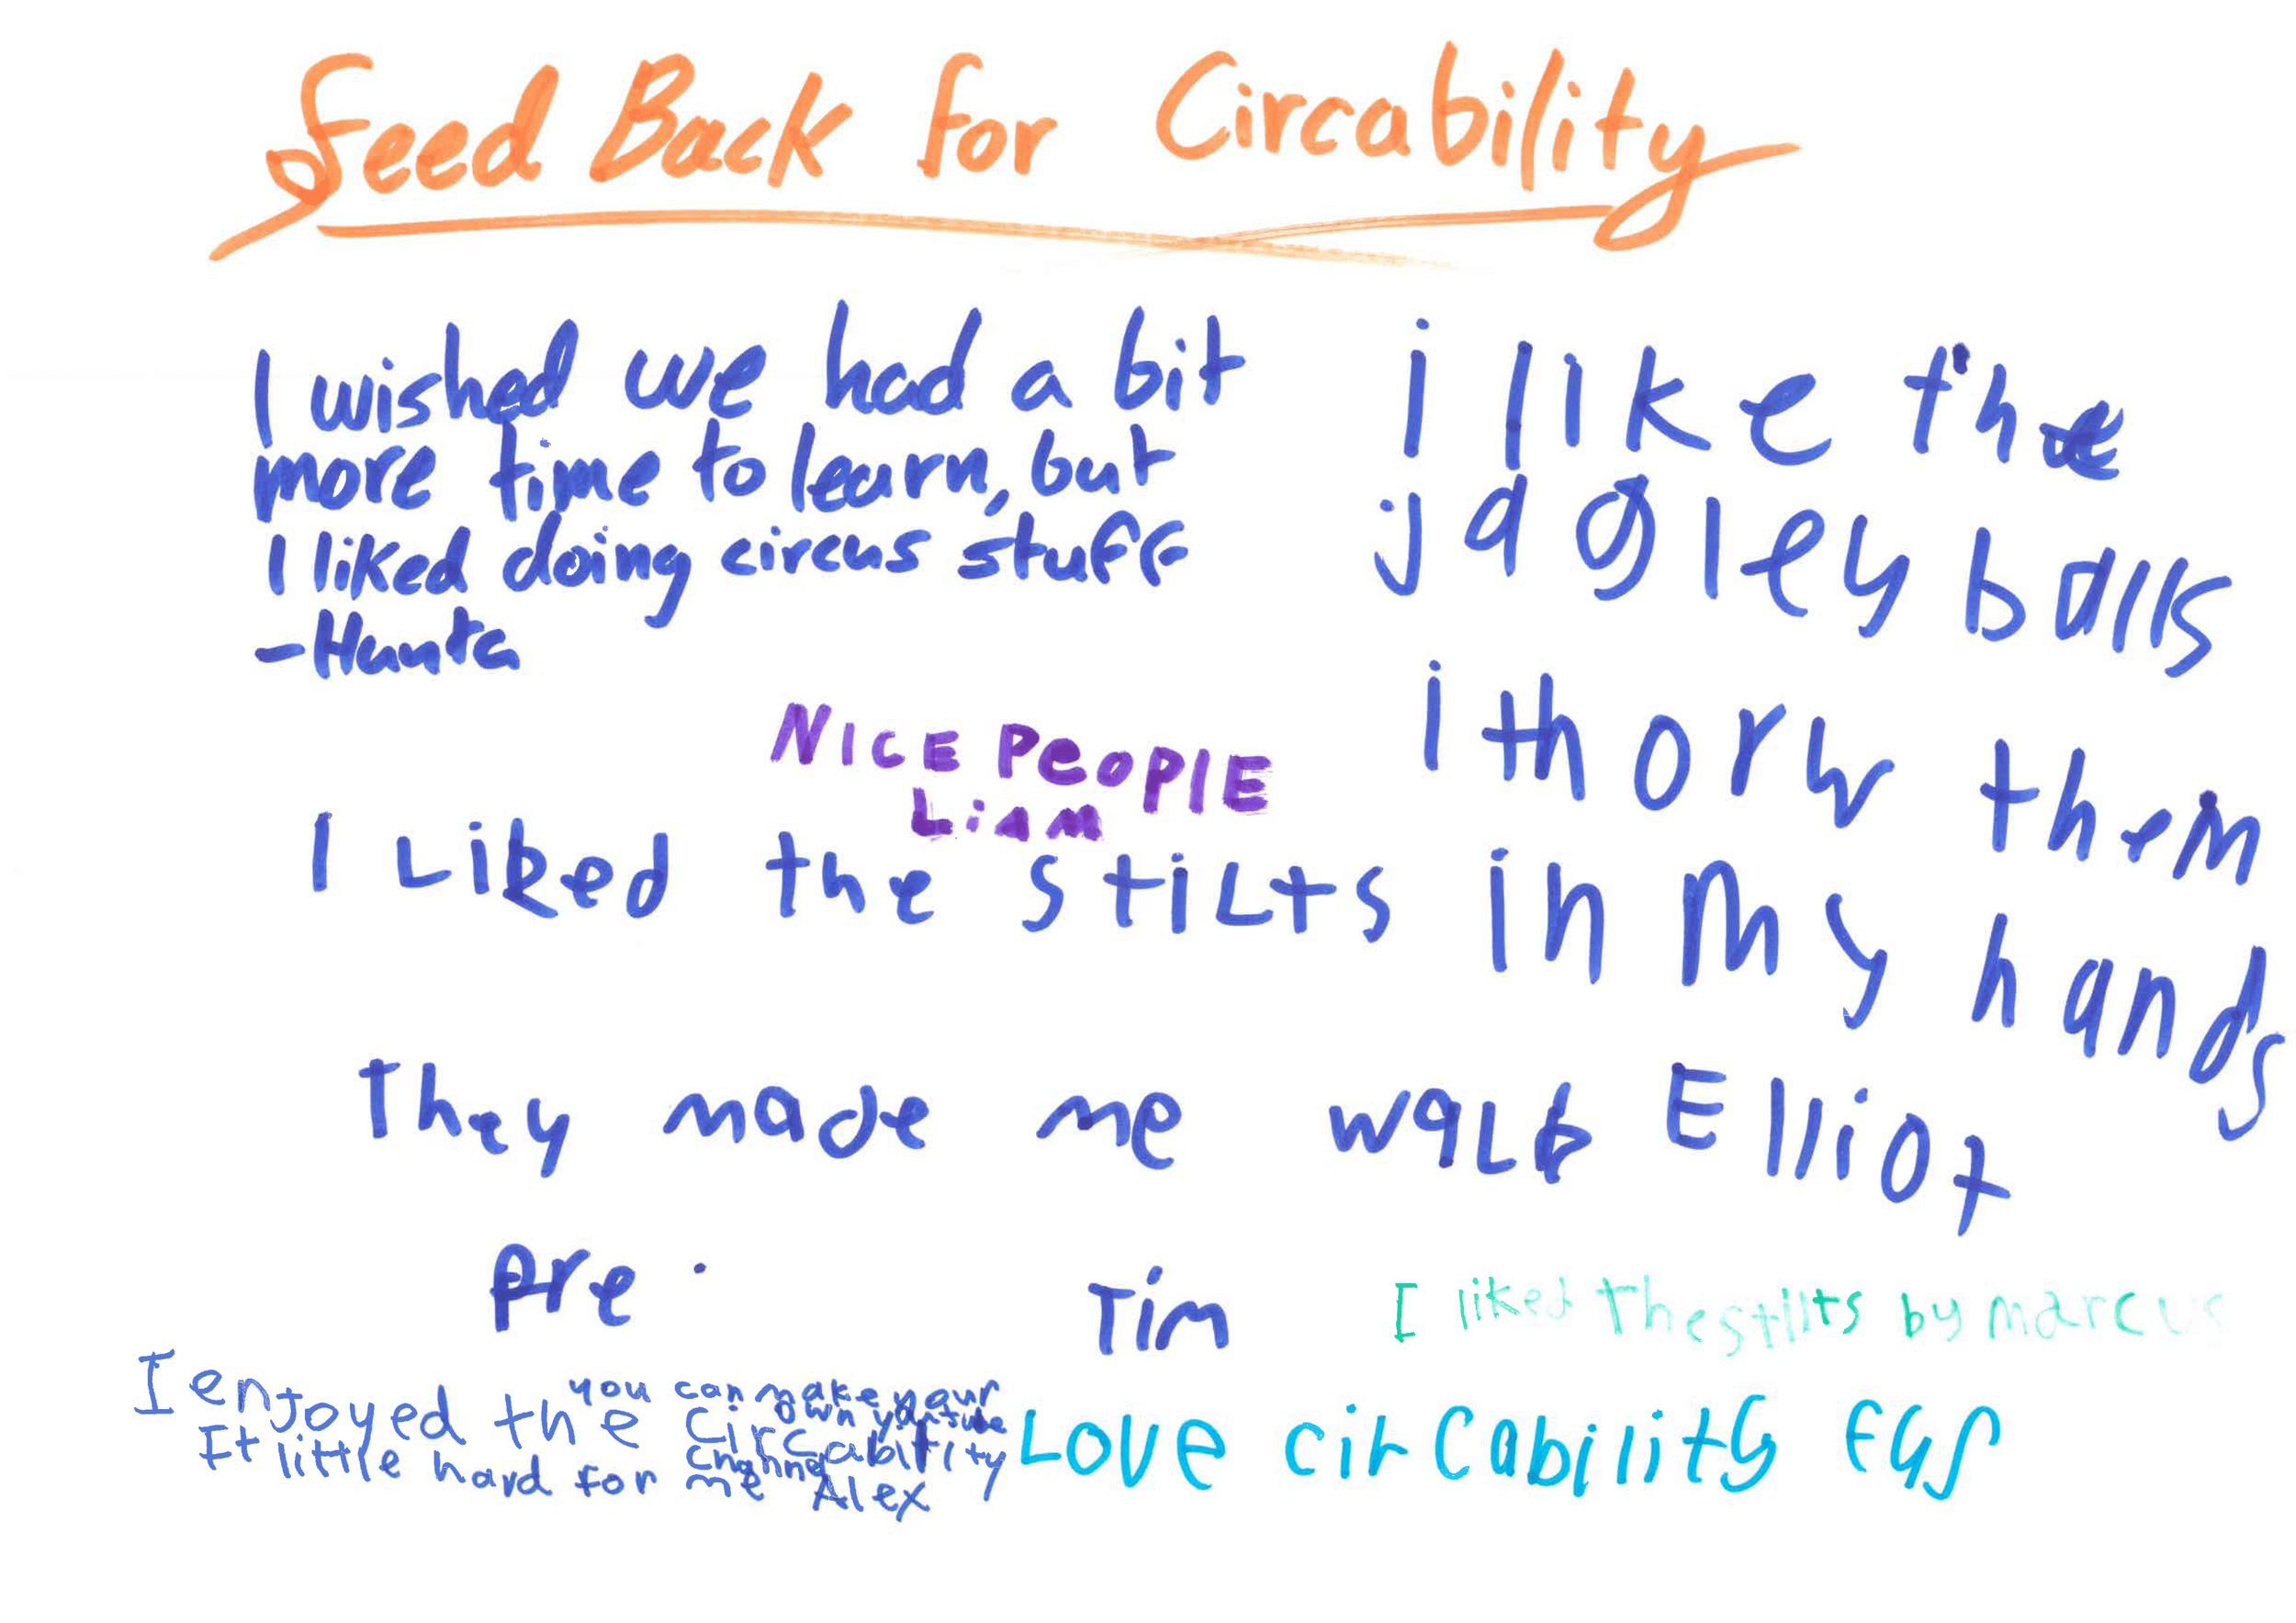 Feed Back for Circability
I wished we had a bit
more time to learn, but
I liked doing circus stuff
-Hunta
i like the
jagley balls
i thorw them
in my hands
Elliot
NICE PEOPLE
Liam
I Liked the stiLts
They made me walk
Are.
Tim
I liked The stilts by marcus
I enjoyed the Circability
It little hard for me Alex
you can make your
own youtube
Channel
Love cirCability